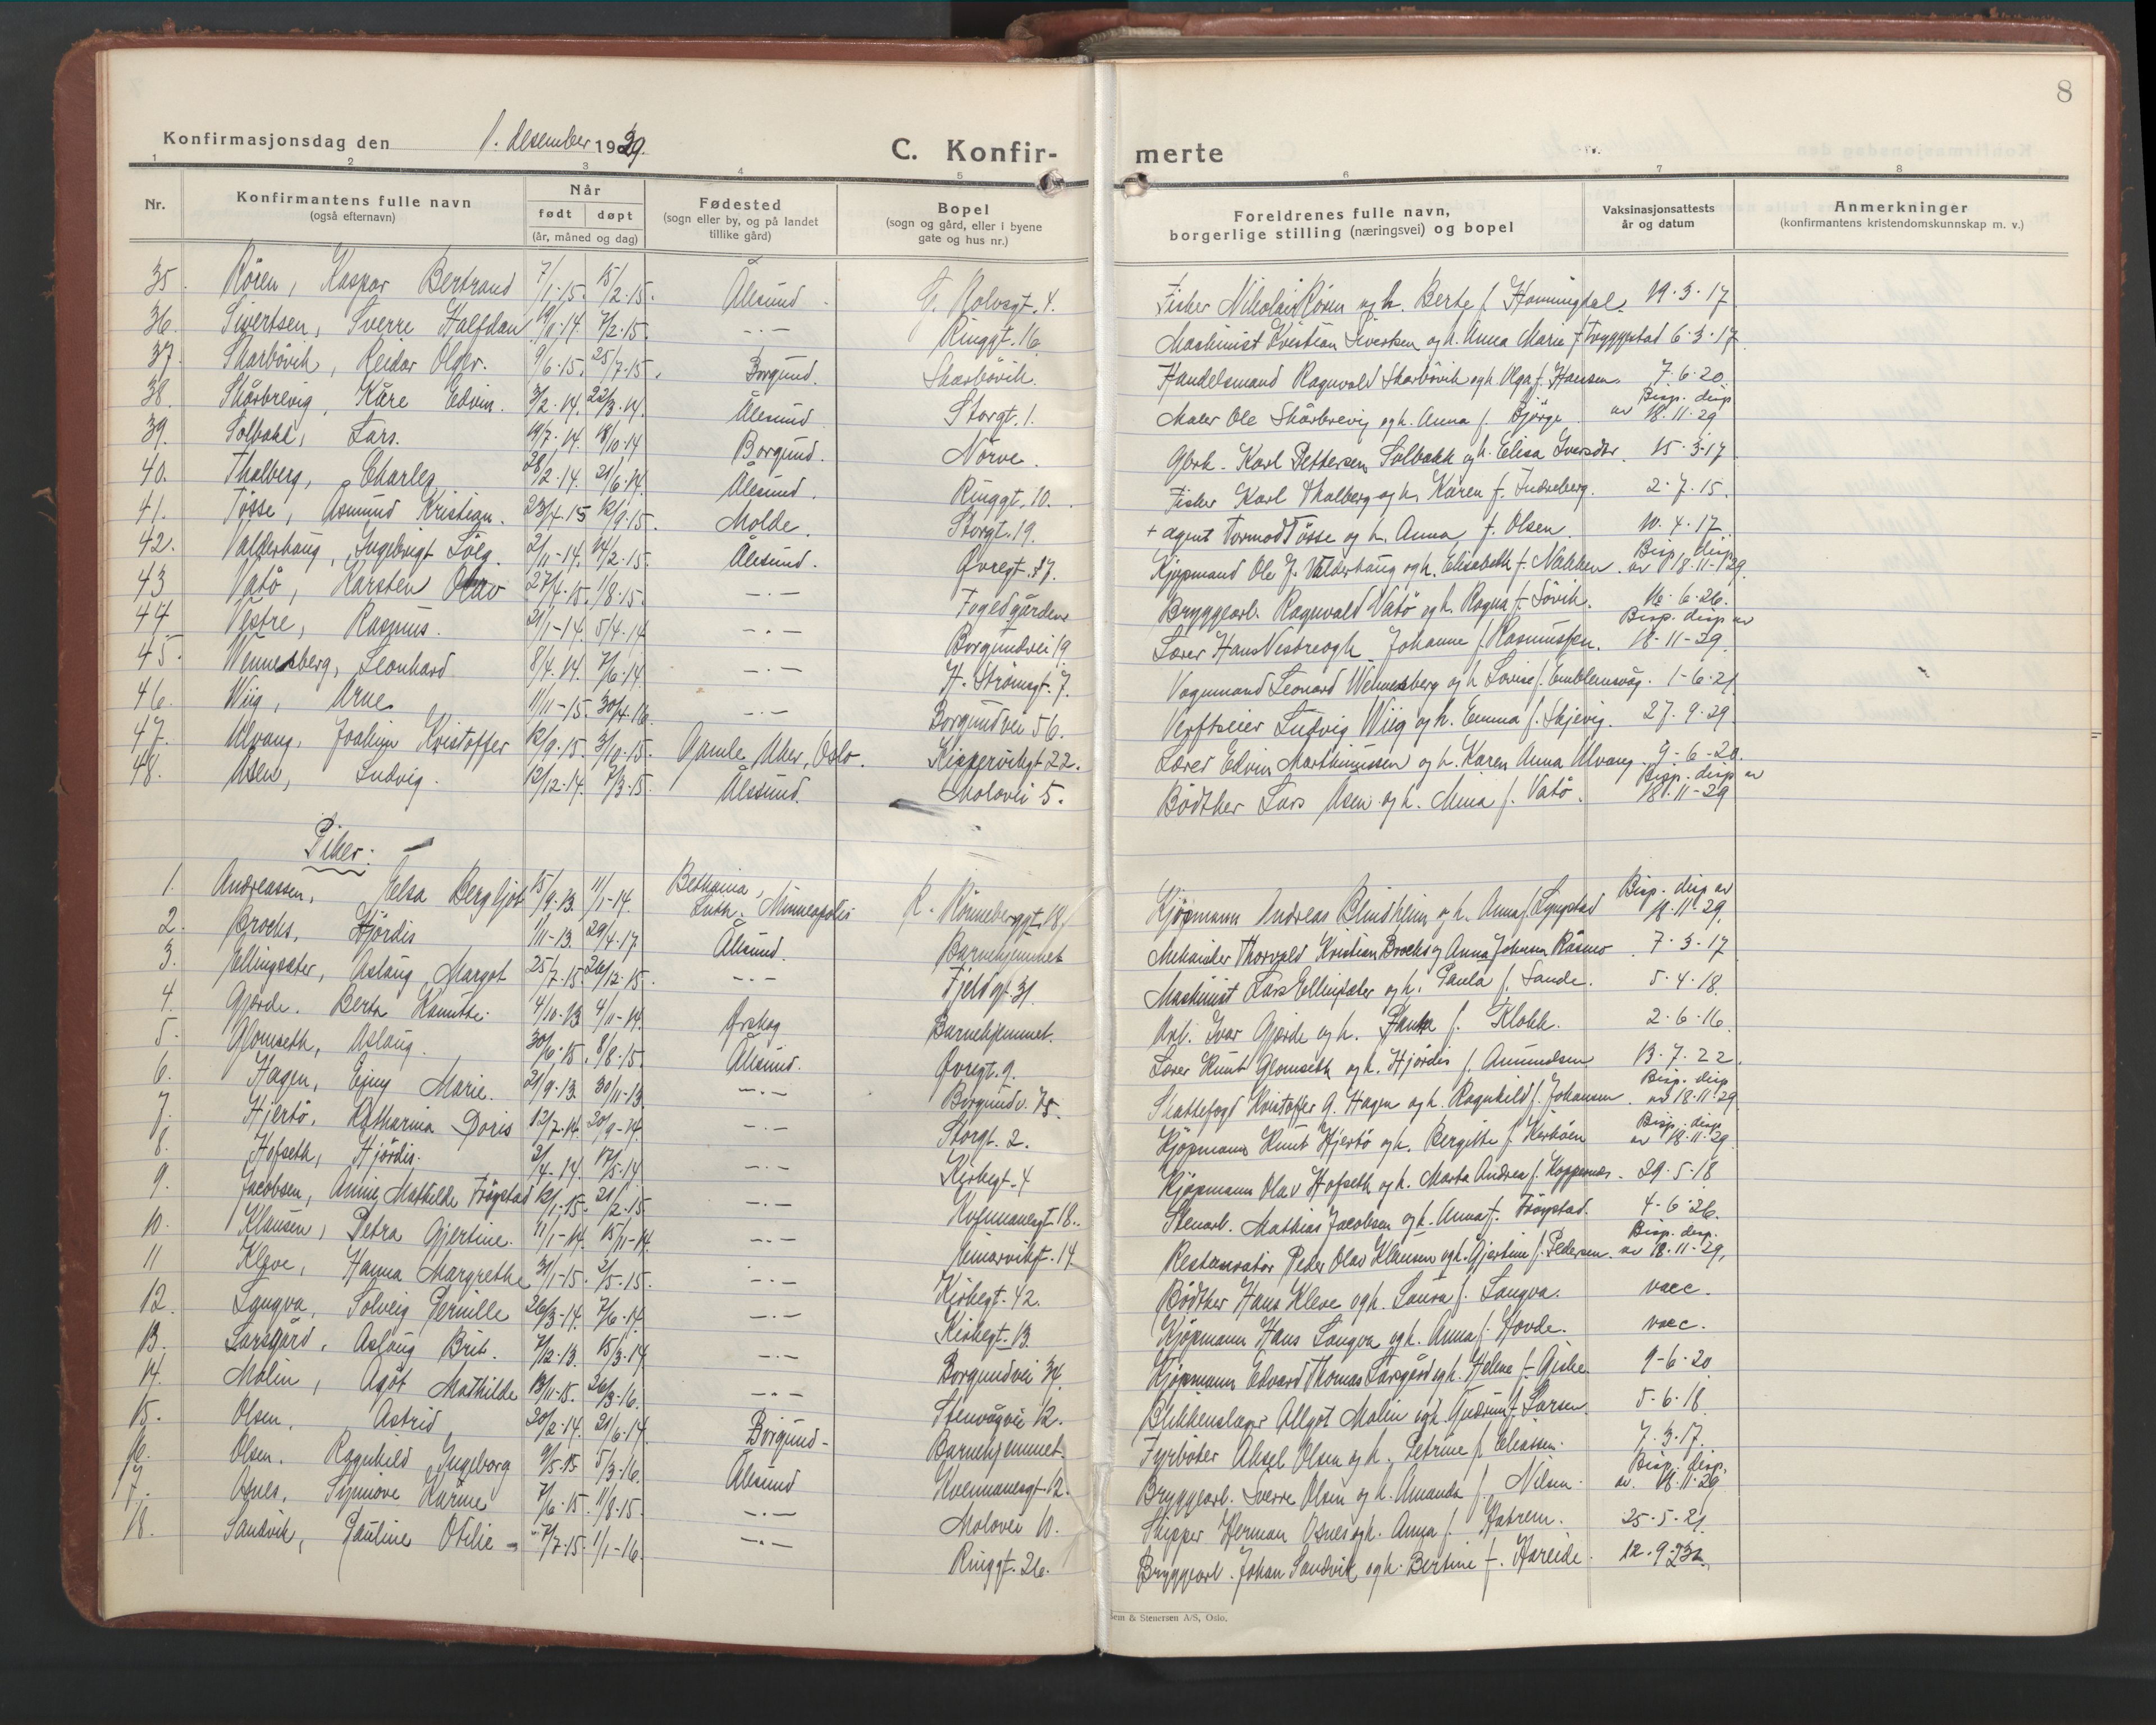 8
Konfirmasjonsdag den 1. desember 1929.
C. Konfir-merte
1 2 3 4 5 6 7 8
Nr. Konfirmantens fulle navn (også efternavn) Når født døpt (år, måned og dag) Fødested (sogn eller by, og på landet tillike gård) Bopel (sogn og gård, eller i byene gate og hus nr.) Foreldrenes fulle navn, borgerlige stilling (næringsvei) og bopel Vaksinasjonsattests år og datum Anmerkninger (konfirmantens kristendomskunnskap m. v.)
35. Røren, Kaspar Bertrand 7/1-15. 15/2-15. Ålesund G. Rolvsgt. 4. Fisker Nikolai Røren og h. Berte f. Honningdal. 19-3-17
36. Sivertsen, Sverre Halfdan 7/2-15. -"- Ringgt. 16 Maskinist Kristian Sivertsen og h. Anna Marie f. Tryggestad 6-3-17
37. Skarbövik, Reidar Olger. 9/6-15. 25/7-15. Borgund. Skarbövik. Handelsmand Ragnvald Skarbövik og h. Olga f. Hansen. 7-6-20
38. Skårbrevig, Kåre Edvin. 3/2-14. 22/3-14. Ålesund Storgt. 1. Maler Ole Skårbrevig og h. Anna f. Bjørge Bisp. disp av 18.11-29
39. Solbakk, Lars. 19/7-14. 18/10-14 Borgund. Nørve. Gbrk. Karl Pettersen Solbakk og h. Elisa Iversdtr. 15-3-17
40. Thalberg, Charles 28/2-14. 21/6-14. Ålesund. Ringgt. 10. Fisker Karl Thalberg og h. Karen f. Indreberg. 2-7-15.
41. Tøsse, Åsmund Kristian. 23/4-15 12/9-15. Molde. Storgt. 19. + agent Tormod Tøsse og h. Anna f. Olsen 10-4-17
42. Valderhaug, Ingebrigt Solg. 2/11-14. 14/2-15. Ålesund. Øvregt. 37. Kjøpmand Ole J. Valderhaug og h. Elisabeth f. Nakken. Bisp. disp av 18-11-29
43 Vatø, Karsten Olav 27/4-15. 1/8-15. -"- Fogedgården Bryggearb. Ragnvald Vatø og h. Ragna f. Søvik. 10-6-26.
44 Vestre, Rasmus. 21/1-14. 5/4-14 -"- Borgundvei 19 Lærer Hans Vestre og h. Johanne f. Rasmussen. Bisp. disp av 18-11-29
45. Wennesberg, Leonhard 8/4-14. 7/6-14. -"- H. Strømsgt. 7. Vognmand Leonard Wennesberg og h. Lovise f. Emblemsvåg. 1-6-21
46. Wiig, Arne. 11/11-15. 30/4-16 -"- Borgundvei 56. Verftseier Ludvig Wiig og h. Emma f. Skjevig. 27.9-29
47. Ulvang, Joakim Kristoffer 12/9-15. 3/10-15. Gamle Aker, Oslo. Kippervikgt 22. Lærer Edvin Marthinussen og h. Karen Anna Ulvang. 9-6-20.
48. Åsen, Ludvig. 12/12-14. 7/3-15. Ålesund. Molovei 5. Bødtker Lars Åsen og h. Mina f. Vatø. Bisp. disp av 18.11-29
Piker:
1. Andreassen, Elsa Bergljot 15/9-13. 11/1-14. Bethania, Luth. Minneapolis K. Rønneberggt. 18 Kjøpmann Andreas Blindheim og h. Anna f. Lyngstad Bisp. disp av 18.11-29.
2. Brochs, Hjördis 1/11-13. 29/4-17 Ålesund. Barnehjemmet Mekaniker Thorvald Kristian Brochs og Anna Johnsen Råsmo 7-3-17
3. Ellingsæter, Aslaug Margot 25/7-15. 26/12-15. -"- Fjeldgt. 31. Maskinist Lars Ellingsæter og h. Paula f. Sande. 5-4-18.
4. Gjørde. Berta Kamitte. 4/10-13 4/11-14. Ørskog Barnehjemmet. Arb. Ivar Gjørde og h. f. Klokk. 2-6-16
5. Glomseth, Aslaug. 30/6-15. 8/8-15. Ålesund. Øvregt. 9. Lærer Knut Glomseth og h. Hjördis f. Amundsen 13-7-22.
6. Hagen, Ejny Marie. 21/9-13. 30/11-13 -"- Borgundv. 75. Skattefogd Kristoffer G. Hagen og h. Ragnhild f. Johansen. Bisp. disp av 18.11-29
7. Hjertø, Katharina Doris 12/7-14. 20/9-14. -"- Storgt. 2. Kjøpmann Knut Hjertø og h. Bergitte f. Bisp. disp av 18.11-29
8. Hofseth, Hjördis. 2/4-14. 17/5-14 -"- Kirkegt. 4 Kjøpmann Olav Hofseth og h. Marta Andrea f. Koppernes. 29-5-18
9. Jacobsen, Annie Mathilde Frøystad 12/1-15. 21/2-15 -"- Kvennanesgt 18. Stenarb. Mathias Jacobsen og h. Anna f. Frøystad. 4-6-26.
10. Klausen, Petra Gjertine. 11/1-14. 15/11-14. -"- 14 Restauratør Peder Olav Klausen og h. Gjertine f. Pedersen. Bisp. disp. av 18.11-29,
11 Kleve, Hanna Margrethe 31/1-15. 2/5-15. -"- Kirkegt. 42. Bødtker Hans Kleve og h. Laura f. Langva. vacc.
12. Langva, Solveig Pernille 26/3-14. 7/6-14. -"- Kirkegt. 13. Kjøpmann Hans Langva og h. Anna f. Hovde. vacc.
13. Larsgård, Aslaug Brit. 7/12-13. 15/3-14 -"- Borgundvei 34. Kjøpmann Edvard Thomas Larsgård og h. Helene f. Giske. 9-6-20
14. Molin, Ågot Mathilde 13/11-15. 26/3-16. -"- Stenvågvei 12. Blikkenslager Allgot Molin og h. Gudrun f. Larsen. 5-6-18
15. Olsen, Astrid 20/2-14. 21/6-14. Borgund- Barnehjemmet. Fyrbøter Aksel Olsen og h. Petrine f. Eliassen. 7-3-17.
16. Olsen. Ragnhild Ingeborg 9/5-15 5/3-16. Ålesund Kvennanesgt. 12. Bryggearb. Sverre Olsen og h. Amanda f. Nilsen. Bisp. disp. av. 18.11-29
17. Osnes, Synnøve Karine 7/6-15. 11/8-15. -"- Molovei 10. Skipper Herman Osnes og h. Anna f. Hatrem. 25-5-21.
18. Sandvik, Pauline Otilie 7/7-15. 1/1-16. -"- Ringgt. 26. Bryggearb. Johan Sandvik og h. Bertine f. Hareide. 12-9-
Sem & Stenersen A/S, Oslo.